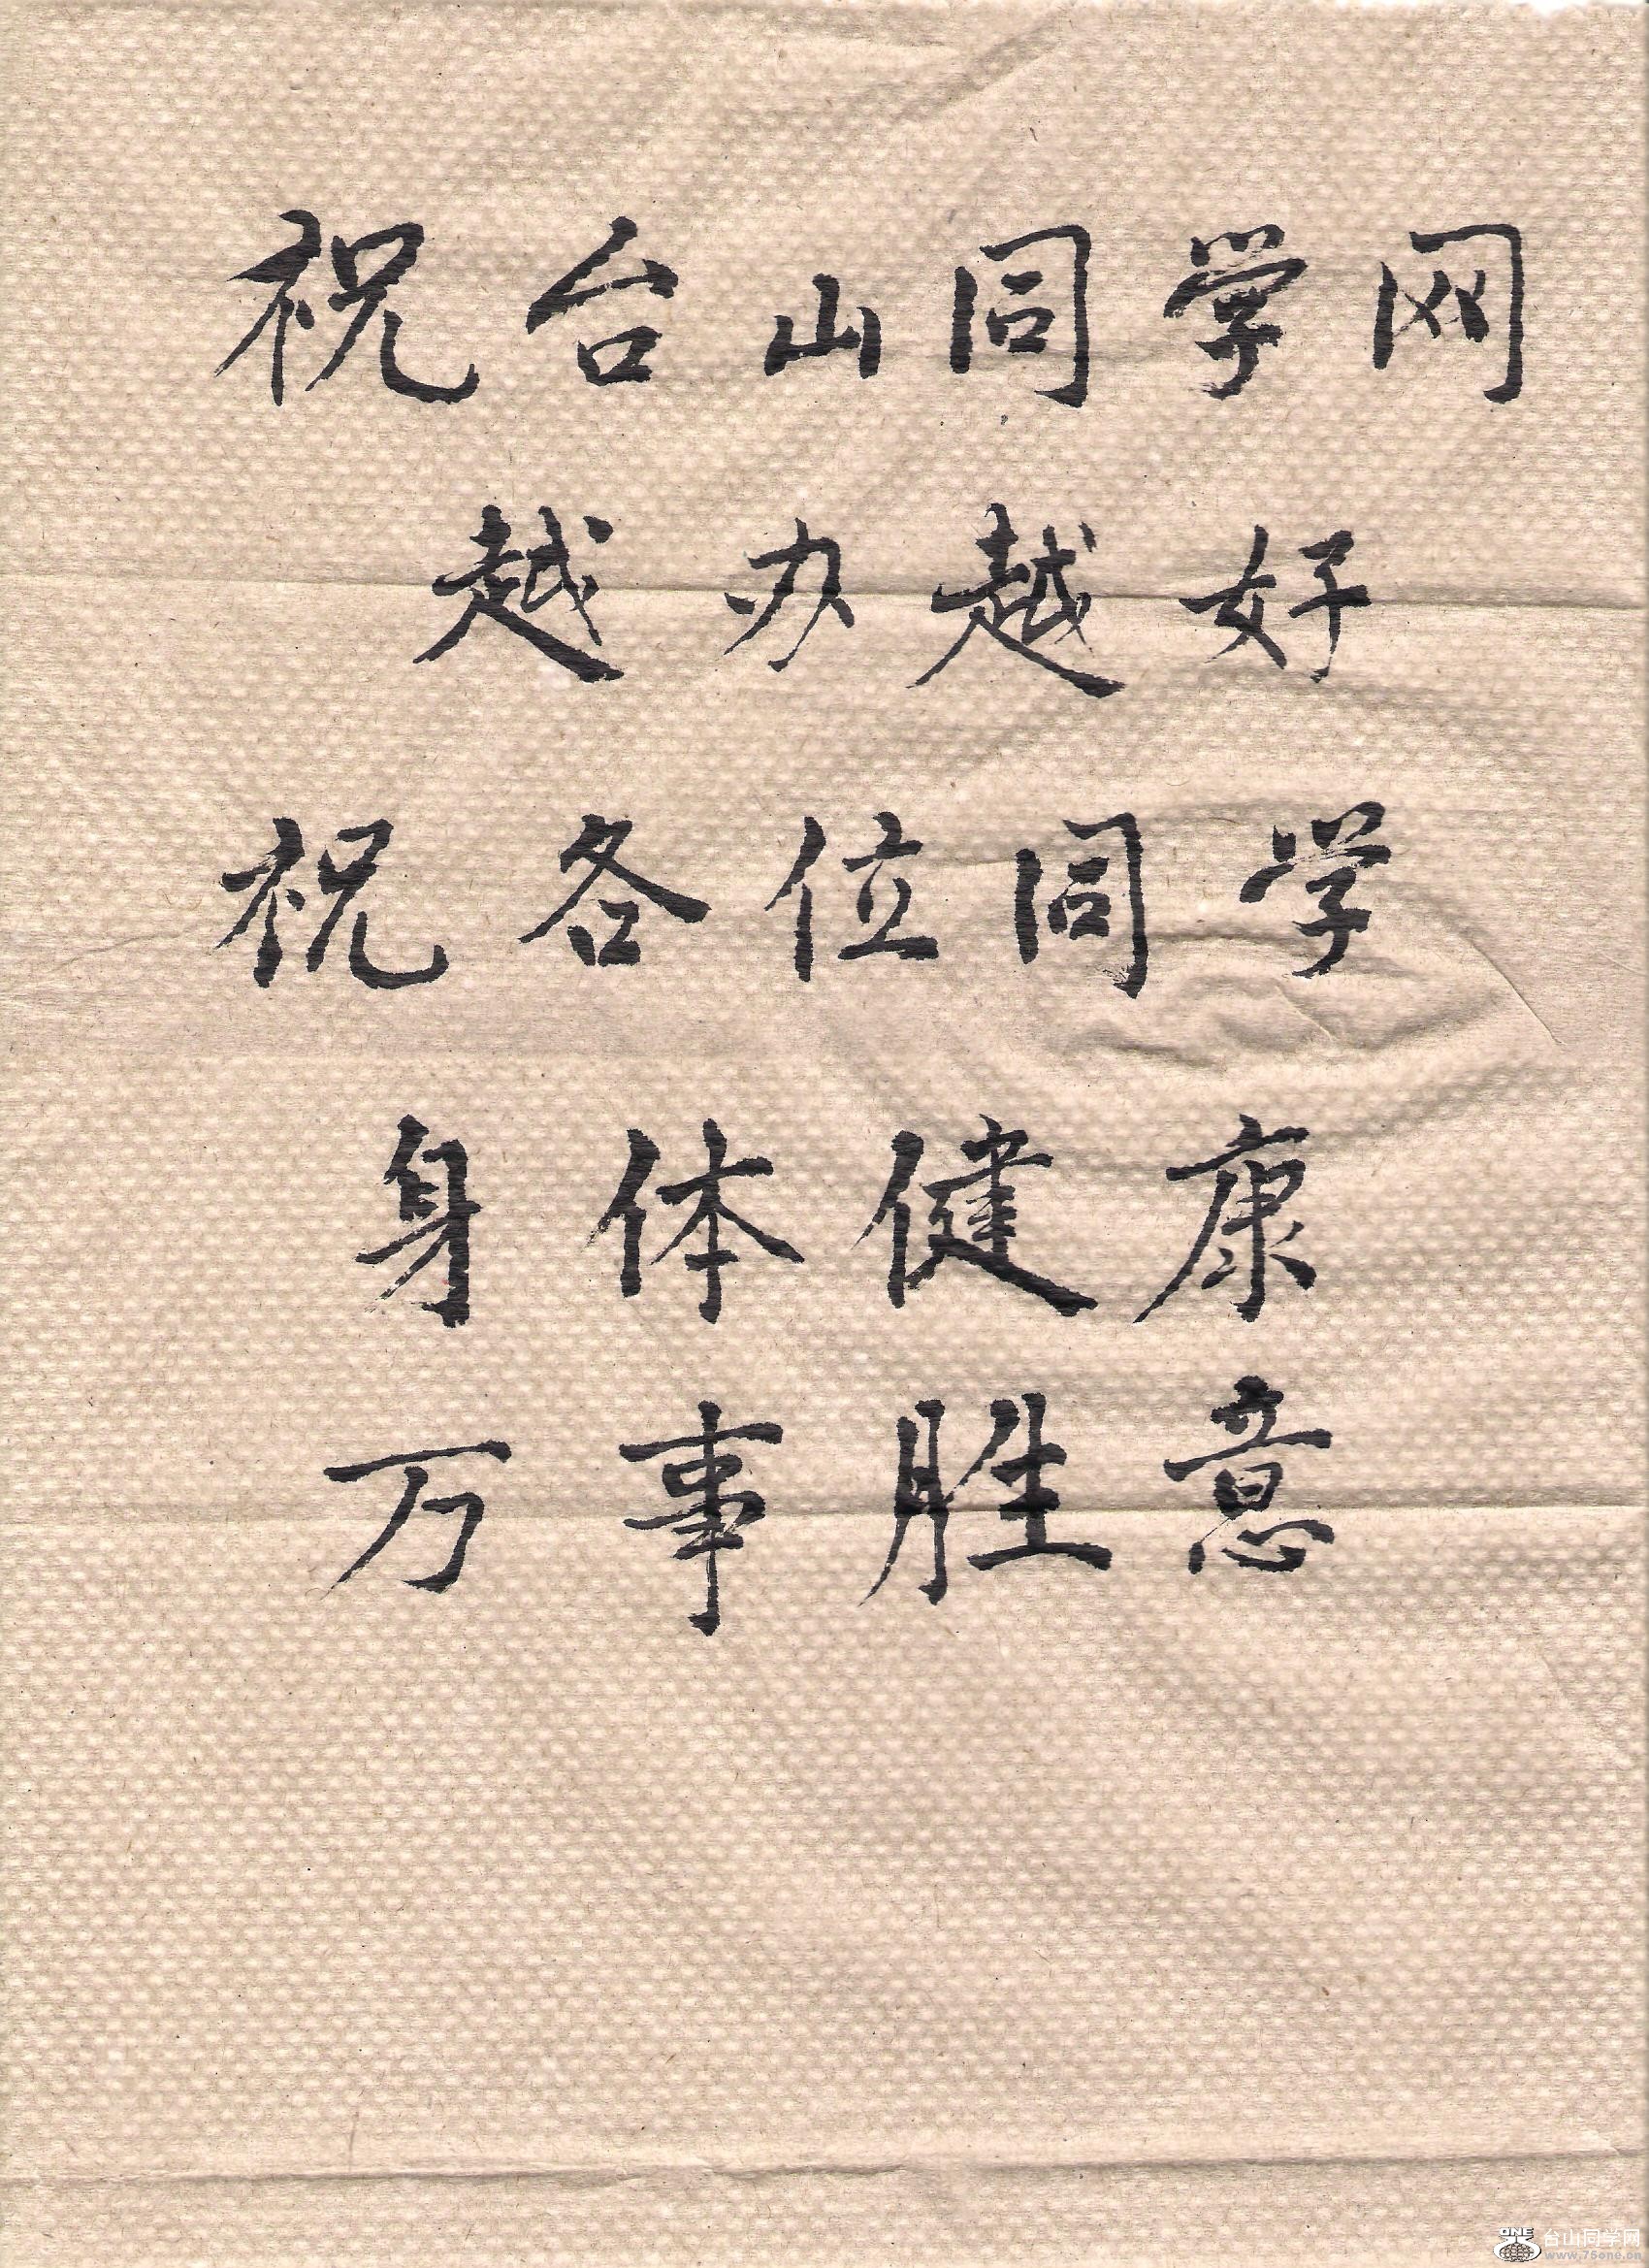 祝台山同学网
越办越好
祝各位同学
身体健康
万事胜意
ONE
台山同学网
www.75one.cn